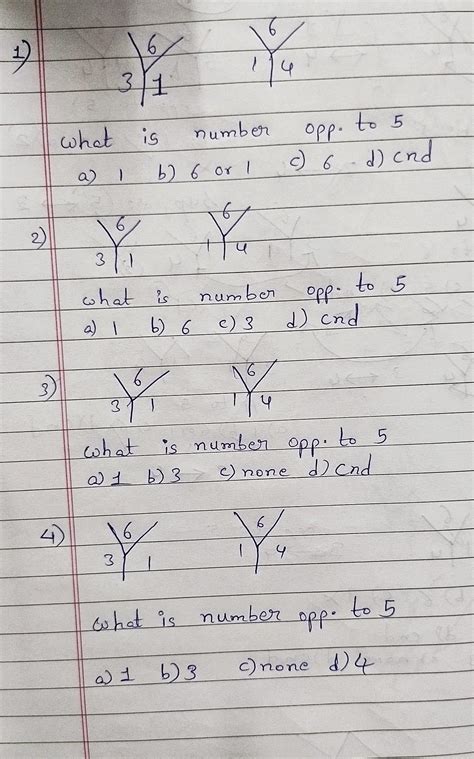 1) 6 6
3 1 1 4
what is number opp. to 5
a) 1 b) 6 or 1 c) 6 d) cnd
2) 6 6
3 1 1 4
what is number opp. to 5
a) 1 b) 6 c) 3 d) cnd
3) 6 6
3 1 1 4
what is number opp. to 5
a) 1 b) 3 c) none d) cnd
4) 6 6
3 1 1 4
what is number opp. to 5
a) 1 b) 3 c) none d) 4